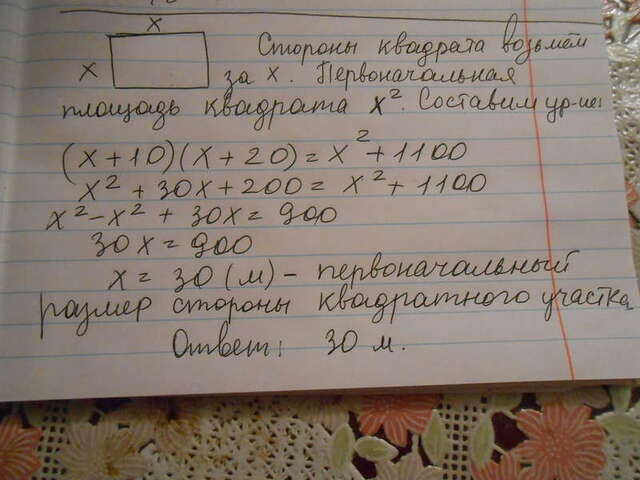 x
Стороны квадрата возьмём
x
за x. Первоначальная
площадь квадрата x². Составим ур-ие:
(x+10)(x+20)=x²+1100
x²+30x+200= x²+1100
x²-x²+30x=900
30x=900
x= 30(м) - первоначальный
размер стороны квадратного участка
Ответ: 30 м.